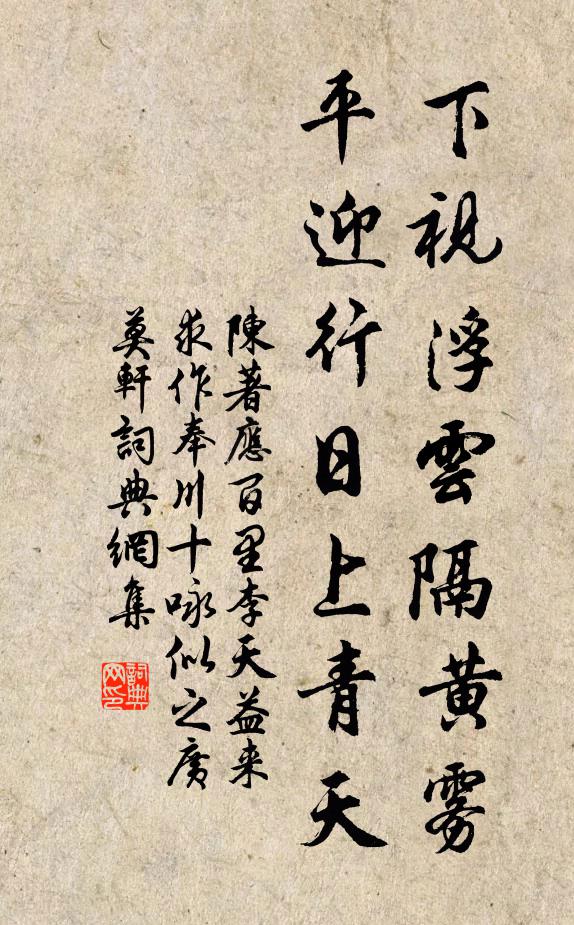 下視浮雲隔黃霧
平迎行日上青天
陳著應百里李天益来
求作奉川十咏似之廣
莫軒詞典網集
詞典网印